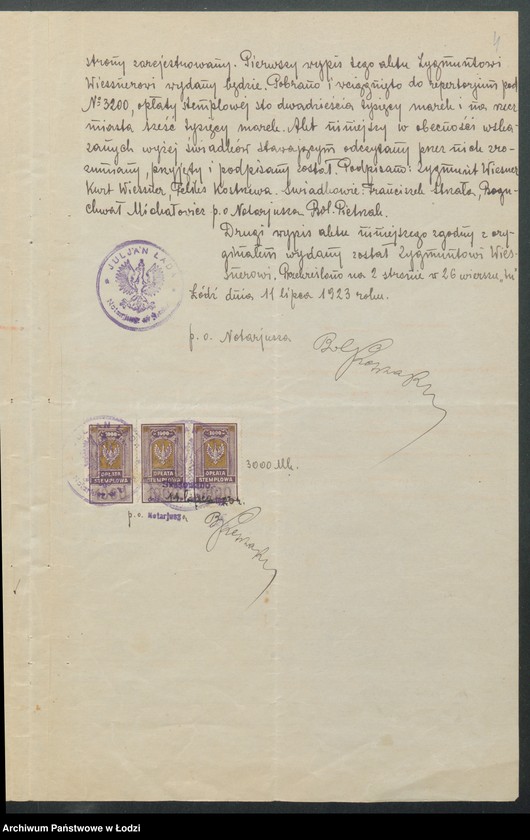 4
strony zarejestrowany. Pierwszy wypis tego aktu Zygmuntowi
Wiessnerowi wydany będzie. Pobrano i wciągnięto do repertorjum pod
№ 3200, opłaty stemplowej sto dwadzieścia tysięcy marek i na rzecz
miasta sześć tysięcy marek. Akt niniejszy w obecności wska-
zanych wyżej świadków stawającym odczytany przez nich zro-
zumiany, przyjęty i podpisany został. Podpisano: Zygmunt Wiessner
Kurt Wiessner, Feliks Kostrzewa. Świadkowie: Franciszek Strzała, Bogu-
chwał Michałowicz p.o Notarjusza Bol. Pietrzak.
Drugi wypis aktu niniejszego zgodny z ory-
ginałem wydany został Zygmuntowi Wies-
snerowi. Przekreślono na 2 stronie w 26 wierszu
Łódź dnia 11 lipca 1923 roku.
JULJAN ŁADA
Notarjusz w Łodzi
p. o. Notarjusza
1000 1000 1000
OPŁATA STEMPLOWA
OPŁATA STEMPLOWA
OPŁATA STEMPLOWA
3000 Mk.
Skasowano
11 lipca
p. o. Notarjusza
Archiwum Państwowe w Łodzi